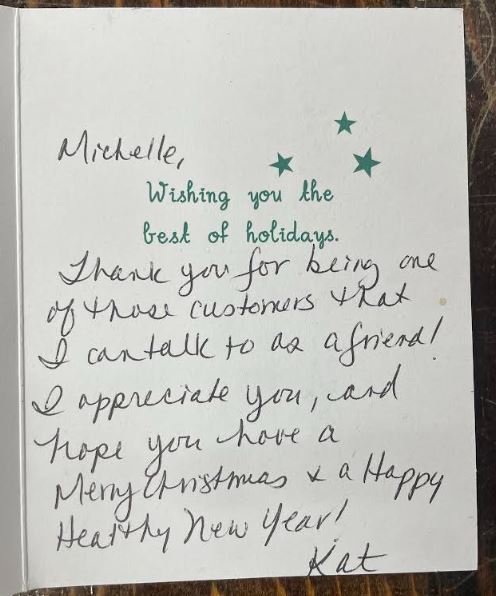 Michelle,
Wishing you the
best of holidays.
Thank you for being one
of those customers that
I can talk to as a friend!
I appreciate you, and
hope you have a
Merry Christmas & a Happy
Healthy New Year!
Kat